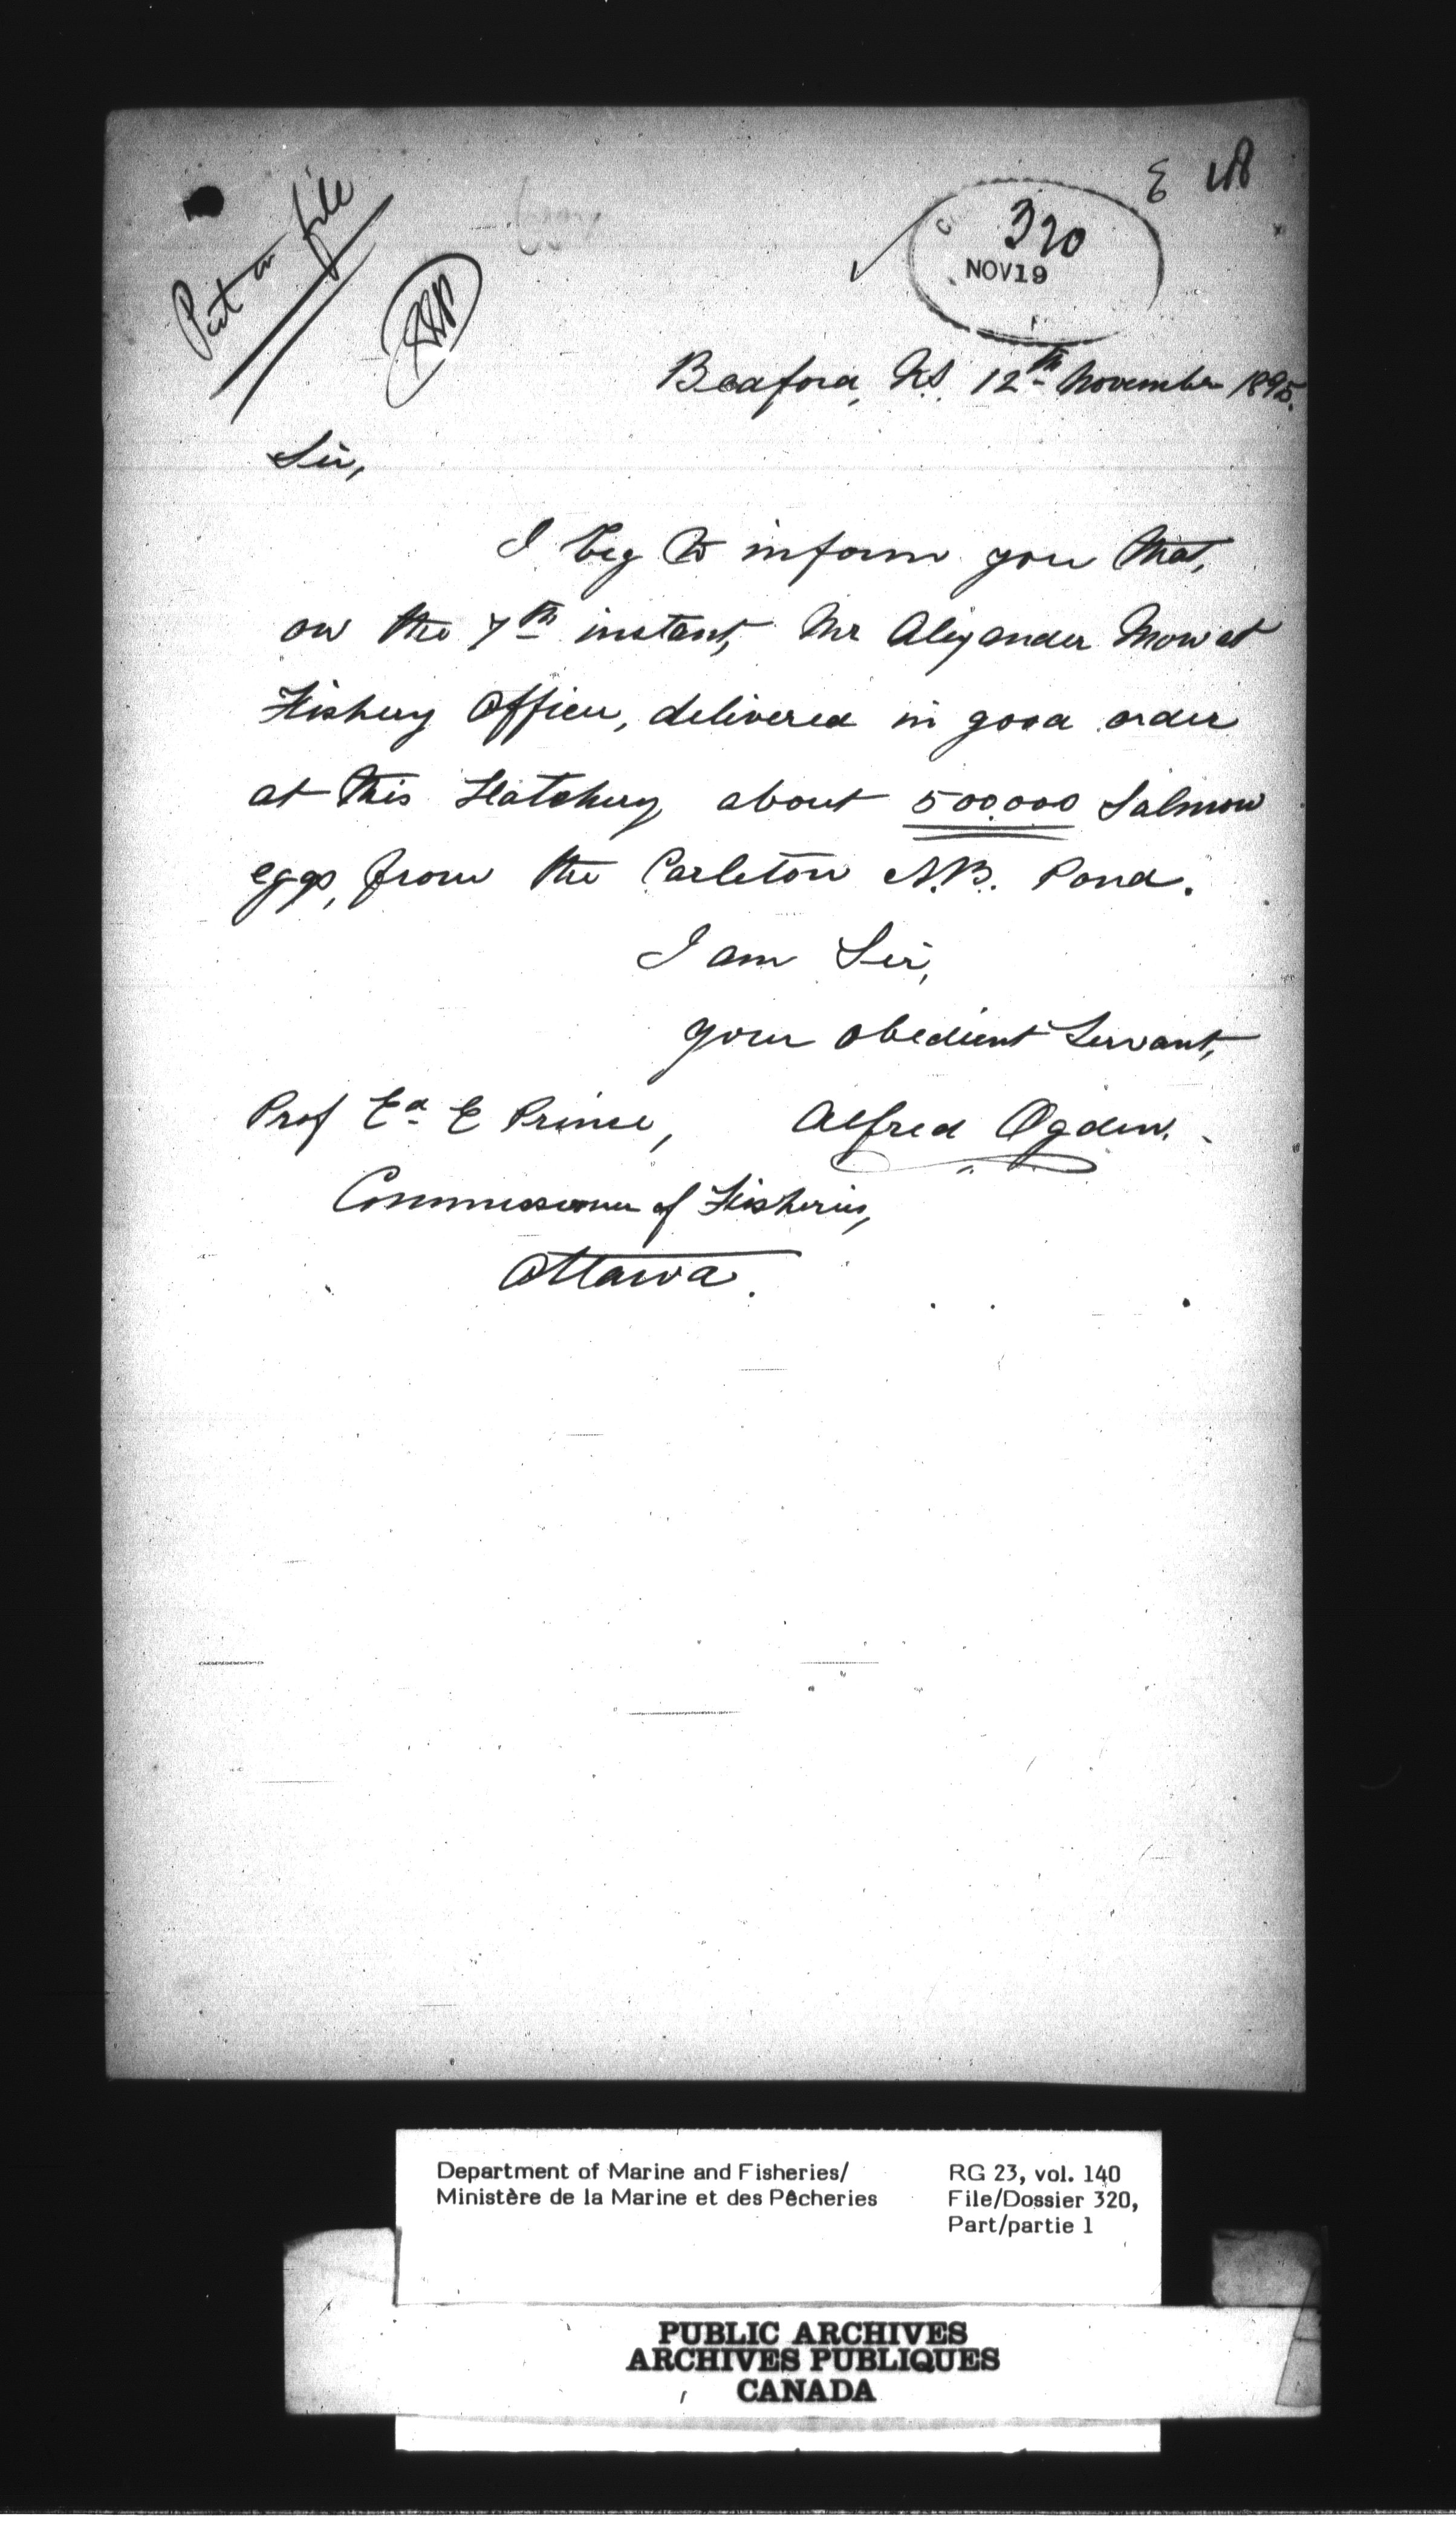 Put on file
320
NOV 19
Bedford, N.S. 12th November 1895.
Sir,
I beg to inform you that,
on the 7th instant, Mr Alexander Mowat
Fishery Officer, delivered in good order
at this Hatchery about 500.000 Salmon
eggs, from the Carleton N.B. Pond.
I am Sir,
your obedient Servant,
Prof Ed E Prince, Alfred Ogden.
Commissioner of Fisheries,
Ottawa.
Department of Marine and Fisheries/ RG 23, vol. 140
Ministère de la Marine et des Pêcheries File/Dossier 320,
Part/partie 1
PUBLIC ARCHIVES
ARCHIVES PUBLIQUES
CANADA